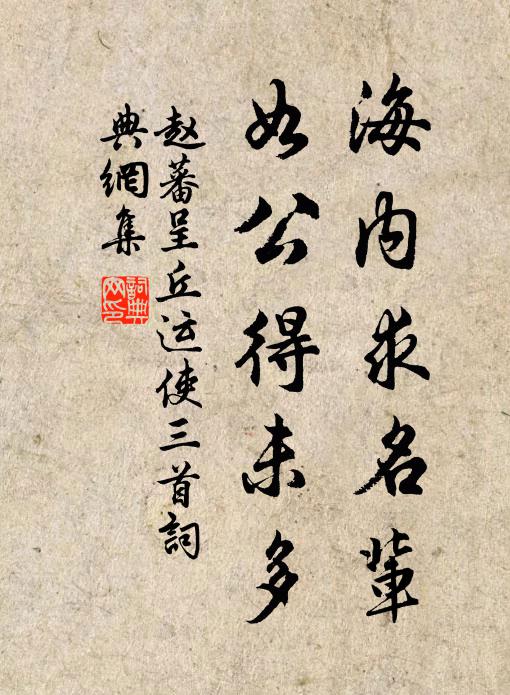 海内求名輩
如公得未多
赵蕃呈丘运使三首詞
典網集
詞典
网印